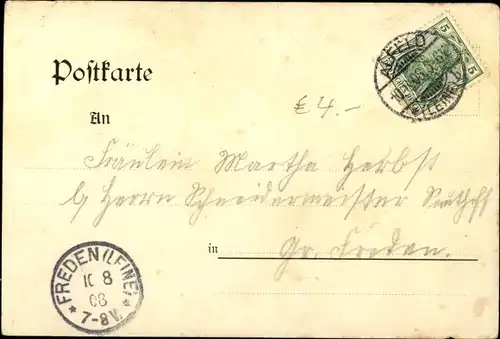 Postkarte
ALFELD
(LEINE)
5
5
An
€ 4.-
Fräulein Martha Herbst
b/ Herrn Schneidermeister
in Gr. Freden.
FREDEN (LEINE)
10 8
08
* 7-8V. *